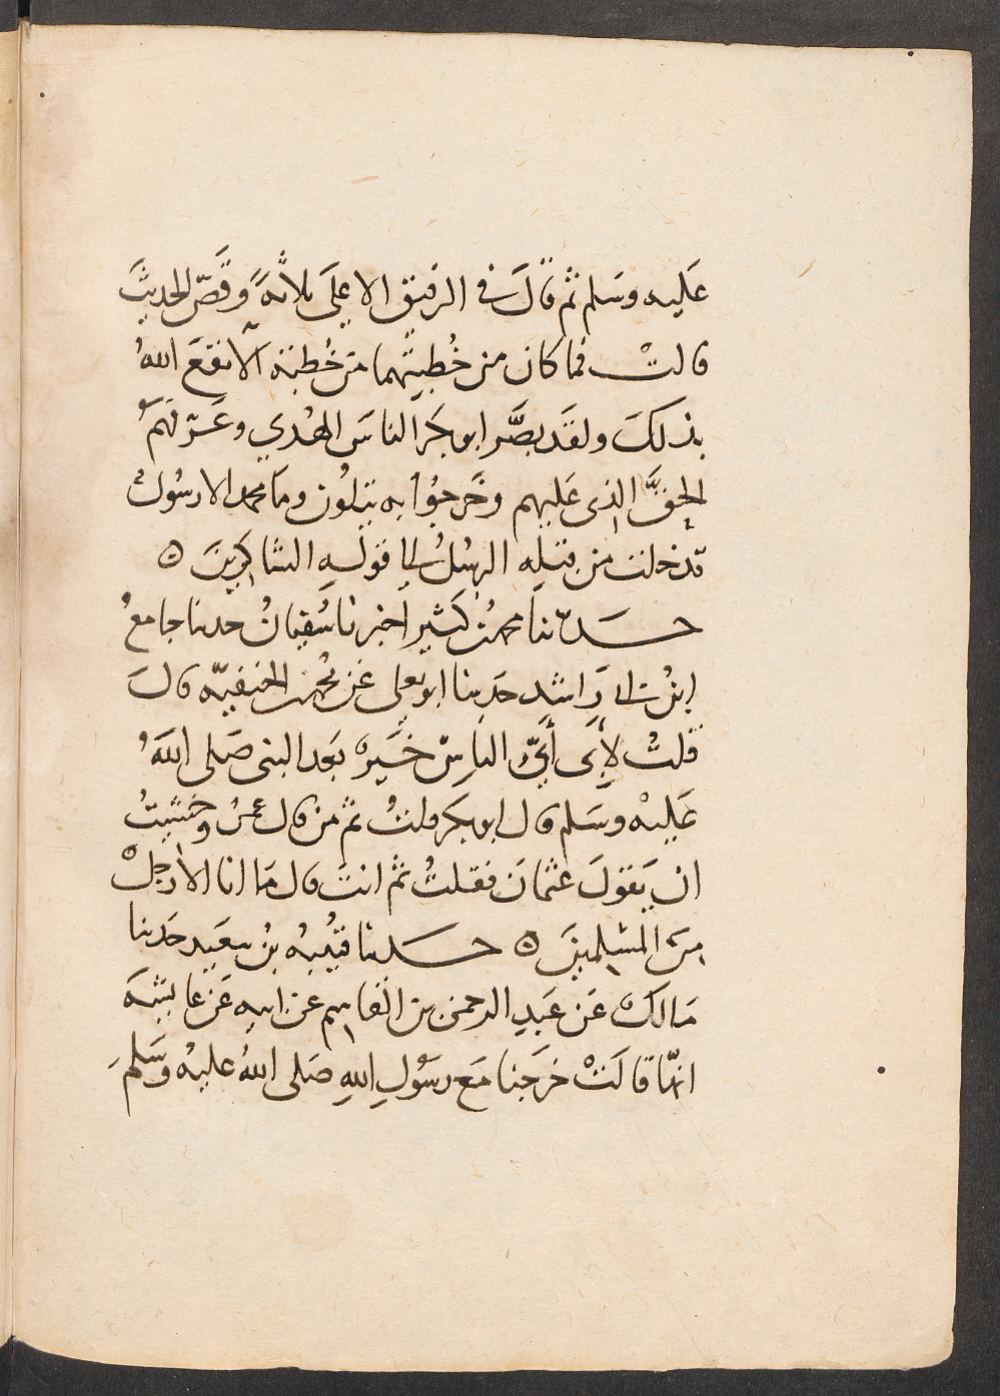 عَليه وسَلم ثم قالَ في الرفيق الاعلَى ثلاثةً وَقَصّ الحديثَ
قالتْ فما كان من خُطبتِهما مِن خُطبَة الّا نفعَ اللهُ
بذلكَ ولقَد بصَّر ابو بكر الناسَ الهُدي وعَرّفهمُ
الحقَّ الذي عَليهم وخَرجوُا به يتلُون ومَا محمد الا رسُولٌ
قد خلت من قبلِه الرسُلُ الى قولِه الشاكِرينَ ه
حدّثنا محمد بن كَثير اخبرنا سُفيانُ حدثنا جامعُ
ابنُ ابي رَاشد حَدثنا ابو يعلى عَن محُمد بن الحنفيّه قالَ
قلتُ لأَبِى أَيُّ الناسِ خَيرٌ بَعد النبى صَلى اللهُ
عَليْه وسَلم قال ابو بكر قلتُ ثم من قال عمرُ وخَشيتُ
ان يَقولَ عثمانَ فقلتُ ثم انتَ قال مَا انا الا رَجلٌ
مِنَ المسلِمينَ ه حدثنا قتَيْبهُ بنُ سعَيد حَدثنا
مَالك عَن عَبدِ الرحمن بن القاسِم عن ابيه عَن عايشَة
انهّا قالَتْ خرَجنا مَع رسُولِ اللهِ صَلى اللهُ عليْه وسَلمَ